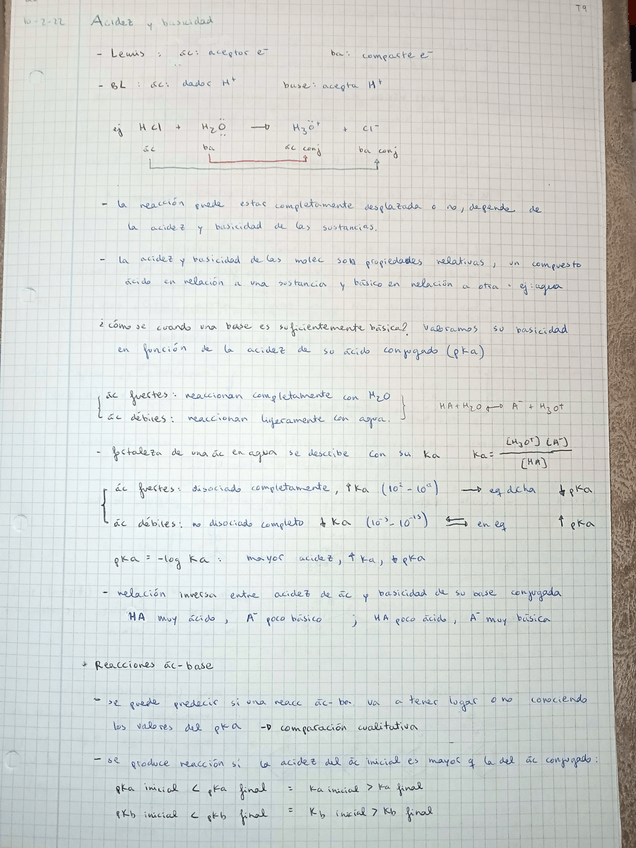 10-2-22 Acidez y basicidad T9
- Lewis: ác: aceptor e⁻ ba: comparte e⁻
- BL: ác: dador H⁺ base: acepta H⁺
ej HCl + H₂Ö → H₃Ö⁺ + Cl⁻
ác ba ác conj ba conj
- la reacción puede estar completamente desplazada o no, depende de
la acidez y basicidad de las sustancias.
- la acidez y basicidad de las molec son propiedades relativas, un compuesto
ácido en relación a una sustancia y básico en relación a otra. ej: agua
¿cómo se cuando una base es suficientemente básica? Valoramos su basicidad
en función de la acidez de su ácido conjugado (pKa)
ác fuertes: reaccionan completamente con H₂O
ác débiles: reaccionan ligeramente con agua.
HA + H₂O ↔ A⁻ + H₃O⁺
- fortaleza de un ác en agua se describe con su Ka Ka = [H₃O⁺] [A⁻]
[HA]
ác fuertes: disociado completamente, ↑Ka → eq dcha ↓pKa
ác débiles: no disociado completo ↓Ka ⇌ en eq ↑pKa
pKa = -log Ka: mayor acidez, ↑Ka, ↓pKa
- relación inversa entre acidez de ác y basicidad de su base conjugada
HA muy ácido, A⁻ poco básico ; HA poco ácido, A⁻ muy básica
Reacciones ác-base
- se puede predecir si una reacc ác-ba va a tener lugar o no conociendo
los valores del pKa → comparación cualitativa
- se produce reacción si la acidez del ác inicial es mayor q la del ác conjugado:
pKa inicial < pKa final = Ka inicial > Ka final
pKb inicial < pKb final = Kb inicial > Kb final